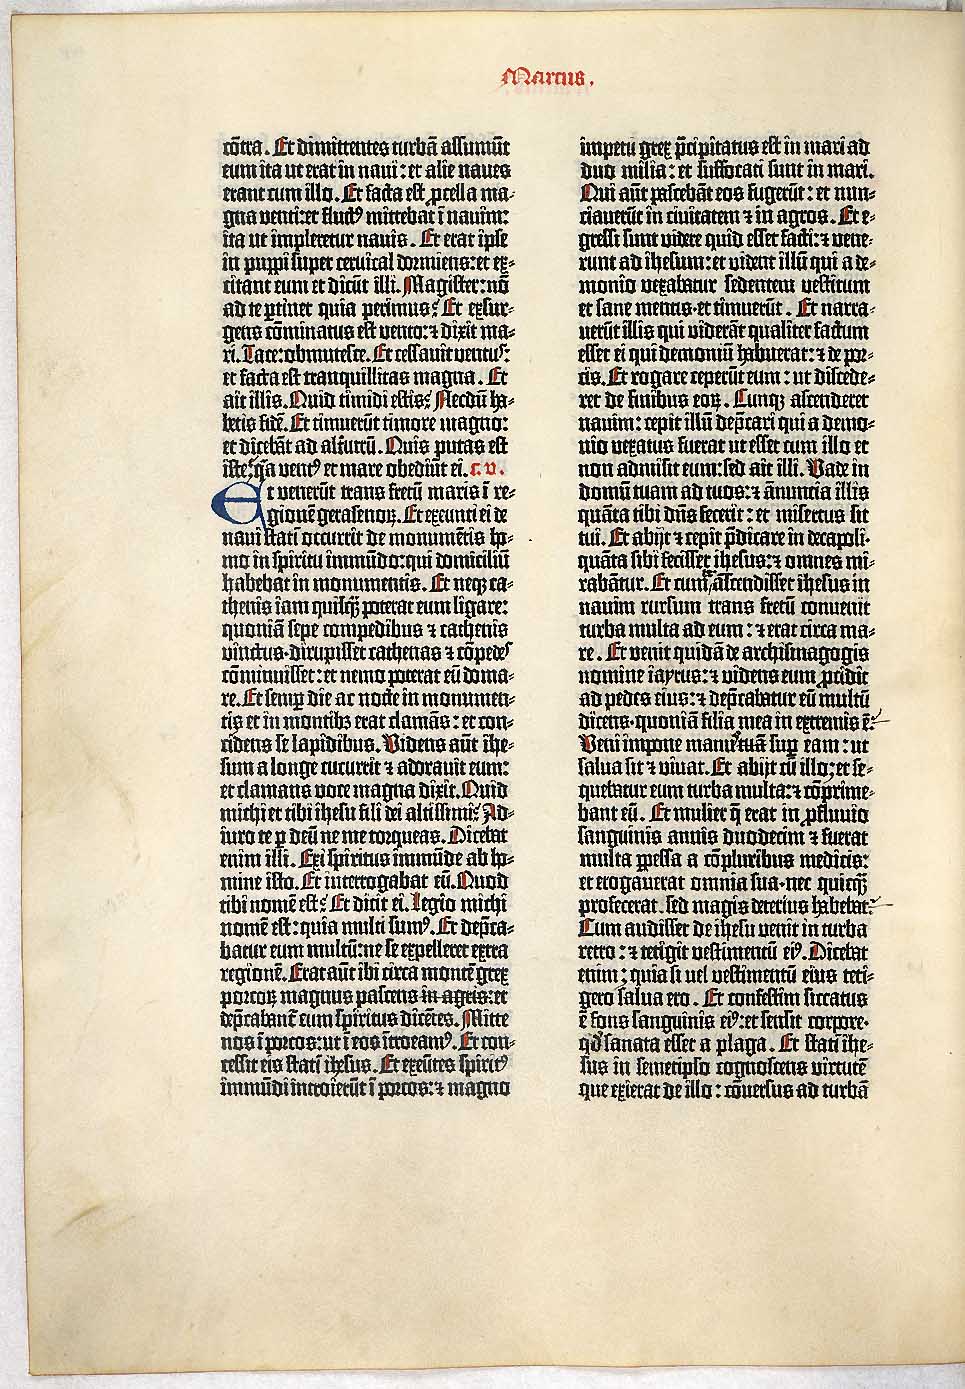 Marcus.
cōtra. Et dimittentes turbā assumūt
eum ita ut erat in navi: et alie naues
erant cum illo. Et facta est ꝓcella ma-
gna venti: et fluctꝰ mittebat ī navim:
ita ut impleretur nauis. Et erat ipse
in puppi super cervical dormiens: et ex-
citant eum et dicūt illi. Magister: nō
ad te ꝑtinet quia perimus? Et exsur-
gens cōminatus est vento: ⁊ dixit ma-
ri. Tace: obmutesce. Et cessauit ventus:
et facta est tranquillitas magna. Et
ait illis. Quid timidi estis? Necdū ha-
betis fidē. Et timuerūt timore magno:
et dicebāt ad alterutrū. Quis putas est
iste: qa ventꝰ et mare obediūt ei. c. v.
Et venerūt trans fretū maris ī re-
gionē gerasenoꝝ. Et exeunti ei de
naui statī occurrit de monumētis ho-
mo in spiritu immūdo: qui domiciliū
habebat in monumentis. Et neqꝫ ca-
thenis iam quisqꝫ poterat eum ligare:
quoniā sepe compedibus ⁊ cathenis
vinctus· dirupisset cathenas ⁊ cōpedes
cōminuisset: et nemo poterat eū doma-
re. Et semꝑ die ac nocte in monumen-
tis et in montibꝫ erat clamās: et con-
cidens se lapidibus. Videns aūt ihe-
sum a longe cucurrit ⁊ adorauit eum:
et clamans voce magna dixit. Quid
michi et tibi ihesu fili dei altissimi? Ad-
iuro te ꝑ deū ne me torqueas. Dicebat
enim illi. Exi spiritus immūde ab ho-
mine isto. Et interrogabat eū. Quod
tibi nomē est? Et dicit ei. Legio michi
nomē est: quia multi sumꝰ. Et dep̄ca-
batur eum multū: ne se expelleret extra
regionē. Erat aūt ibi circa montē grex
porcoꝝ magnus pascens in agris: et
dep̄cabantᷣ eum spiritus dicētes. Mitte
nos ī porcos: ut ī eos ītroeamꝰ. Et con-
cessit eis statī ihesus. Et exeūtes spiritꝰ
immūdi introierūt ī porcos: ⁊ magno
impetu grex p̄cipitatus est in mari ad
duo milia: et suffocati sunt in mari.
Qui aūt pascebāt eos fugerūt: et nun-
ciauerūt in civitatem ⁊ in agros. Et e-
gressi sunt videre quid esset facti: ⁊ vene-
runt ad ihesum: et vident illū qui a de-
monio vexabatur sedentem vestitum
et sane mentis· et timuerūt. Et narra-
uerūt illis qui viderāt qualiter factum
esset ei qui demoniū habuerat: ⁊ de por-
cis. Et rogare ceperūt eum: ut discede-
ret de finibus eoꝝ. Cunqꝫ ascenderet
nauim: cepit illū dep̄cari qui a demo-
nio vexatus fuerat ut esset cum illo et
non admisit eum: sed ait illi. Vade in
domū tuam ad tuos: ⁊ ānuncia illis
quāta tibi dn̄s fecerit: et misertus sit
tui. Et abijt ⁊ cepit p̄dicare in decapoli·
quāta sibi fecisset ihesus: ⁊ omnes mi-
rabātur. Et cum ascendisset ihesus in
nauim rursum trans fretū conuenit
turba multa ad eum: ⁊ erat circa ma-
re. Et venit quidā de archisinagogis
nomine iayrus: ⁊ videns eum ꝓcidit
ad pedes eius: ⁊ dep̄cabatur eū multū
dicens· quoniā filia mea in extremis ē.
Veni impone manū tuā suꝑ eam: ut
salua sit ⁊ viuat. Et abijt cū illo: et se-
quebatur eum turba multa: ⁊ cōprime-
bant eū. Et mulier q̄ erat in ꝓfluuio
sanguinis annis duodecim ⁊ fuerat
multa ꝑpessa a cōpluribus medicis:
et erogauerat omnia sua· nec quicqꝫ
profecerat· sed magis deterius habebat.
Cum audisset de ihesu venit in turba
retro: ⁊ tetigit vestimentū eiꝰ. Dicebat
enim; quia si uel vestimentū eius teti-
gero salua ero. Et confestim siccatus
ē fons sanguinis eiꝰ: et sensit corpore·
qd sanata esset a plaga. Et statī ihe-
sus in semetipso cognoscens virtutē
que exierat de illo: cōuersus ad turbā